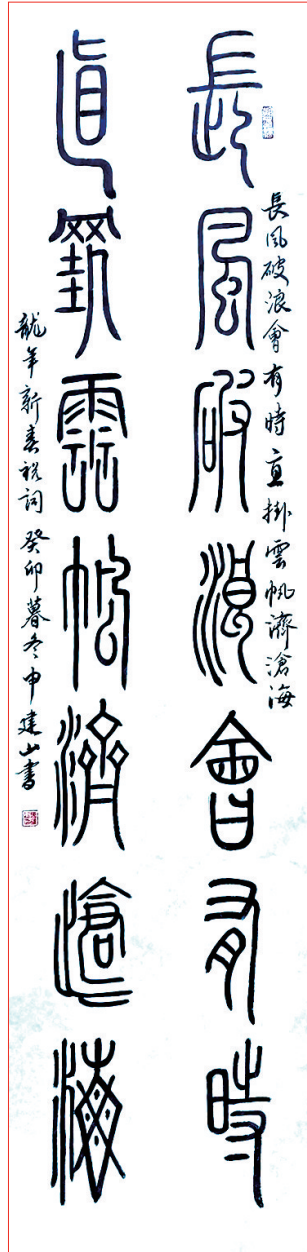 長風破浪會有時直掛雲帆濟滄海
長風破浪會有時
直掛雲帆濟滄海
龍年新春祝詞 癸卯暮冬申建山書